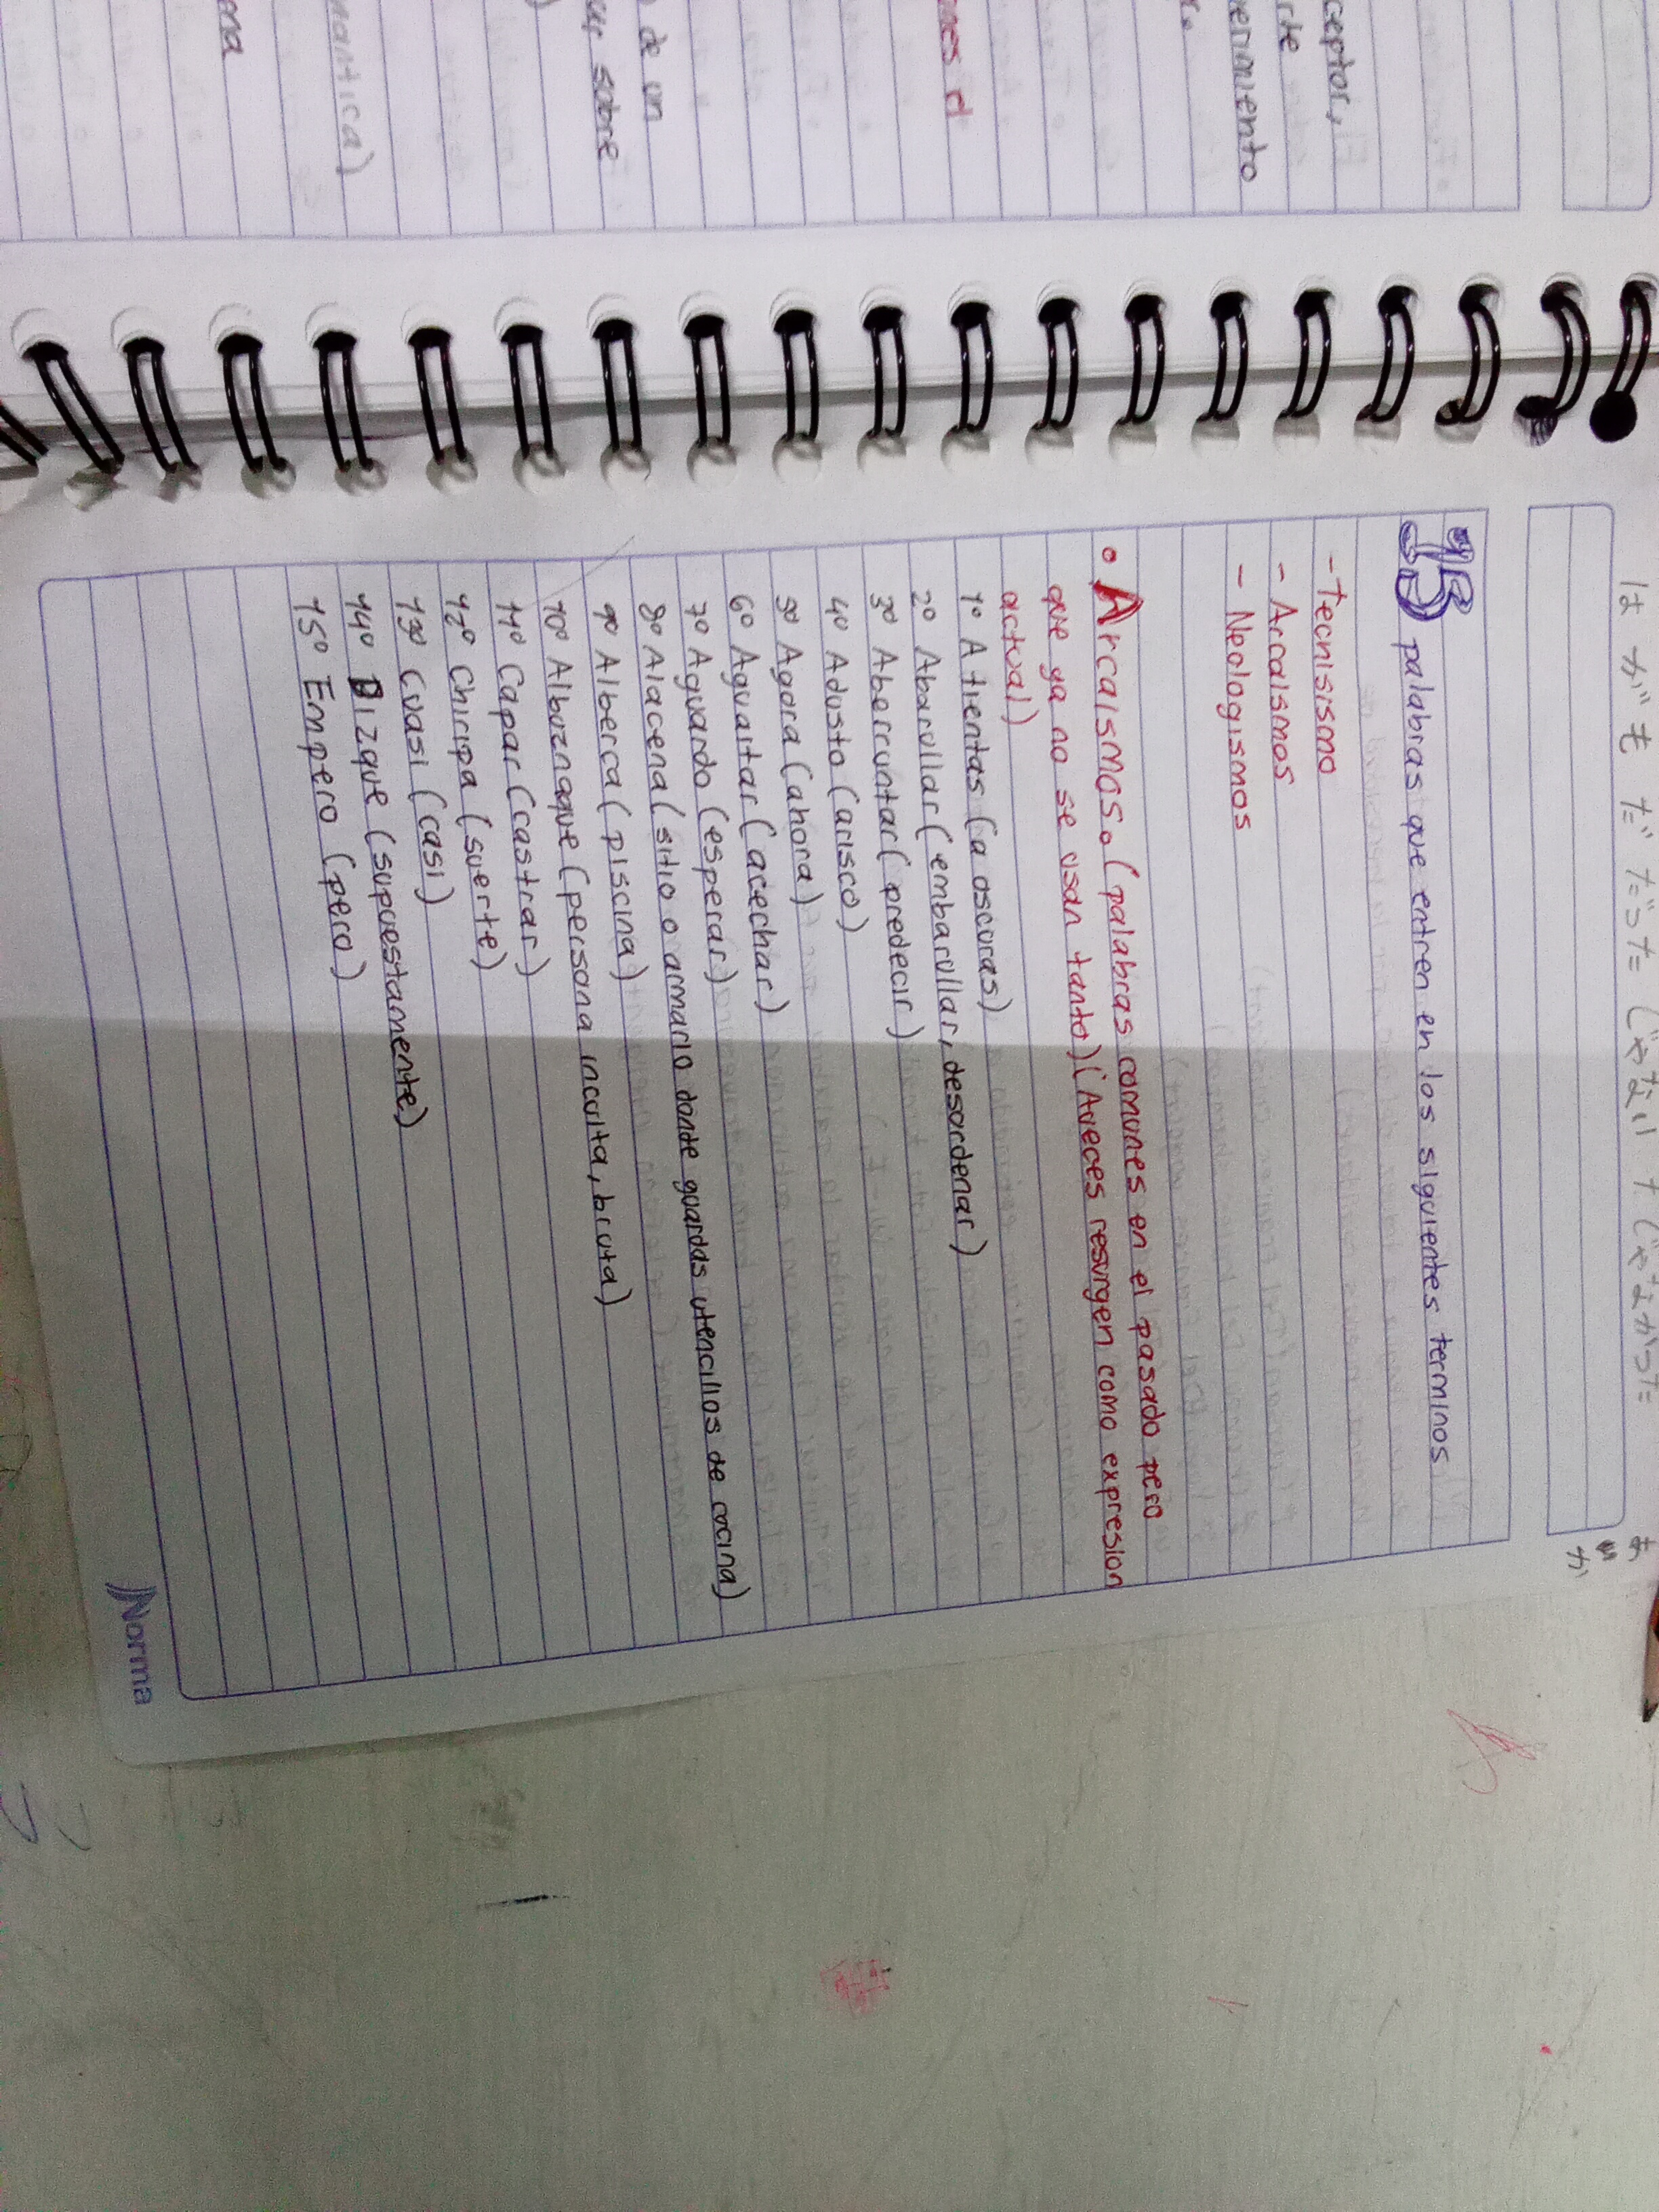 はがもだだった(じゃない + じゃなかった
15 palabras que entren en los siguientes terminos
- Tecnisismo
- Arcaismos
- Neologismos
• Arcaismos. (palabras comunes en el pasado pero
que ya no se usan tanto) (Aveces resurgen como expresion
actual)
1º A tientas (a oscuras)
2º Abarullar (embarullar, desordenar)
3º Aberruntar (predecir)
4º Adusto (arisco)
5º Agora (ahora)
6º Aguaitar (acechar)
7º Aguardo (esperar)
8º Alacena (sitio o armario donde guardas utencilios de cocina)
9º Alberca (piscina)
10º Albuznaque (persona inculta, bruta)
11º Capar (castrar)
12º Chiripa (suerte)
13º Cuasi (casi)
14º Dizque (supuestamente)
15º Empero (pero)
Norma
ceptor,
rte
enimiento
r.
nes d
de un
ur sobre
mantica)
ma